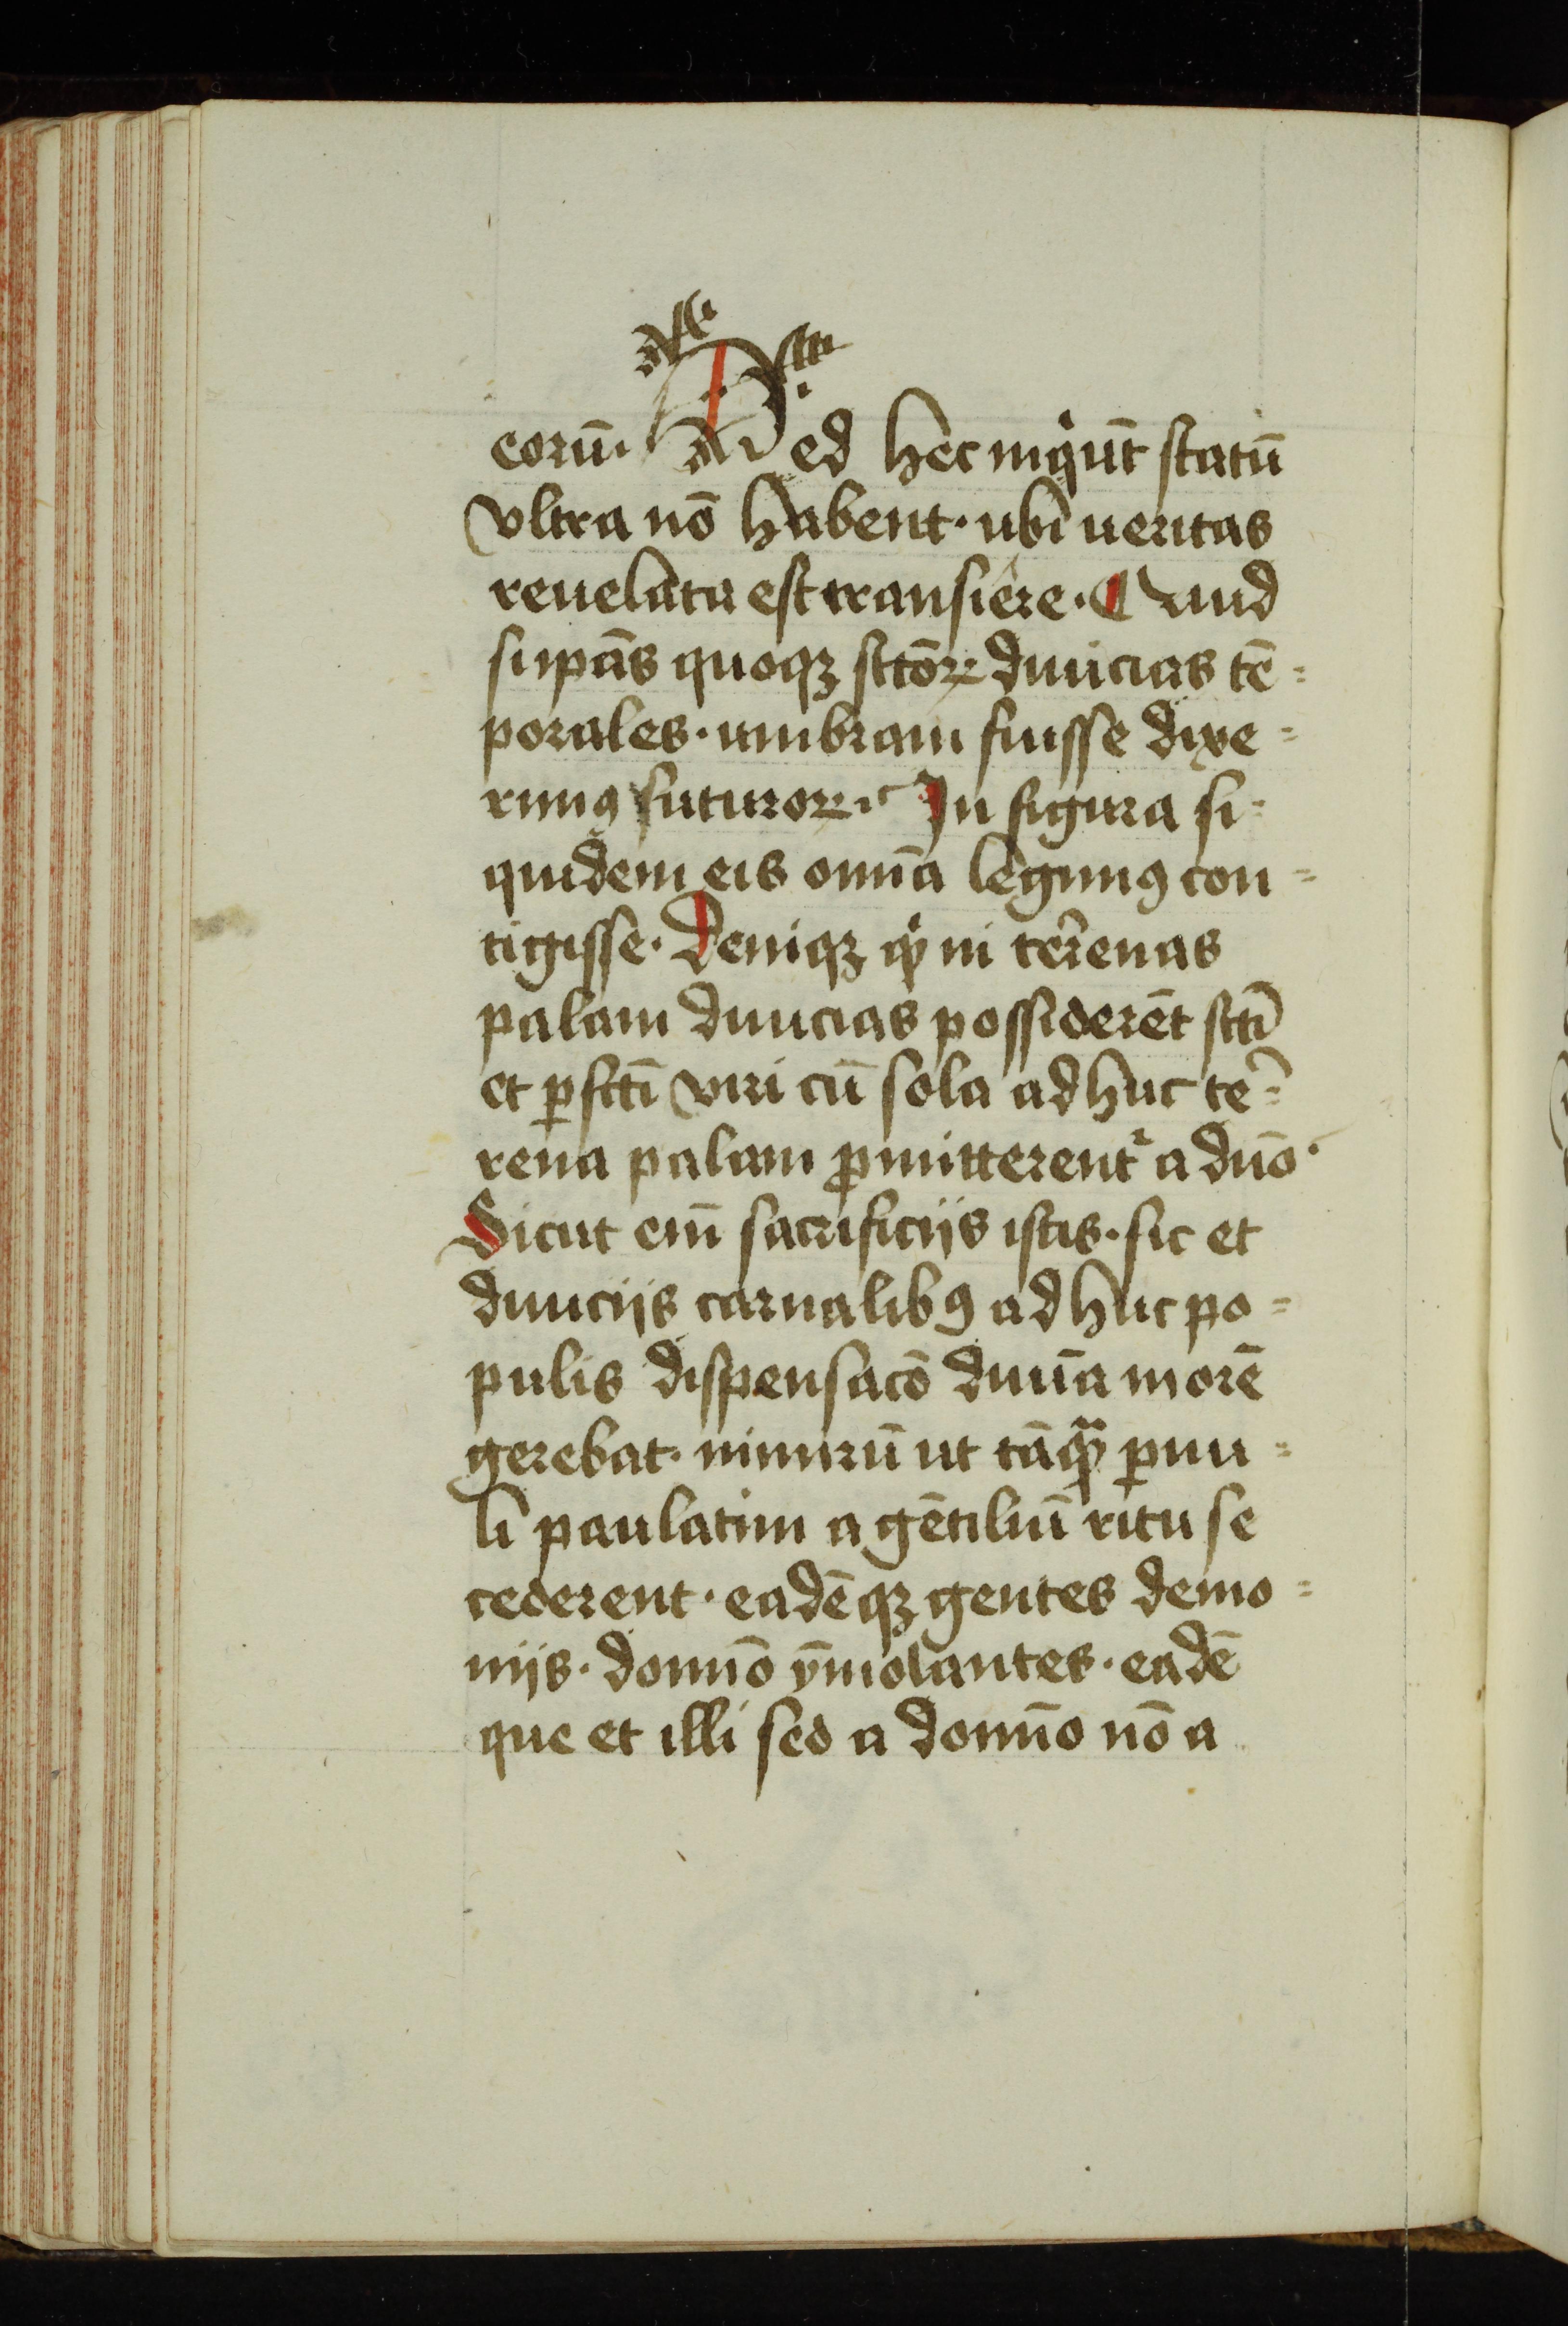 eorū. Sed hec inqͥūt statū
vltra nō habent. ubi ueritas
reuelata est transiere. Quid
si pās quoqꝫ sctōꝝ diuicias tē=
porales. umbram fuisse dixe=
rimꝯ futuroꝝ. In figura si=
quidem eis om̄ia legimꝯ con=
tigisse. Deniqꝫ qͥ ni terrenas
palam diuicias possiderēt scti
et ꝑfcti viri cū sola adhuc ter=
rena palam ꝓmitterent᷑ a dn̄o.
Sicut em̄ sacrificijs istis. sic et
diuicijs carnalibꝯ adhuc po=
pulis dispensacō diuīa morē
gerebat. nimirū ut tāqᷓ ꝑuu=
li paulatim a gētiliū ritu se
cederent. eadēqꝫ gentes demo=
nijs. domīo ȳmolantes. eadē
que et illi sed a domīo nō a